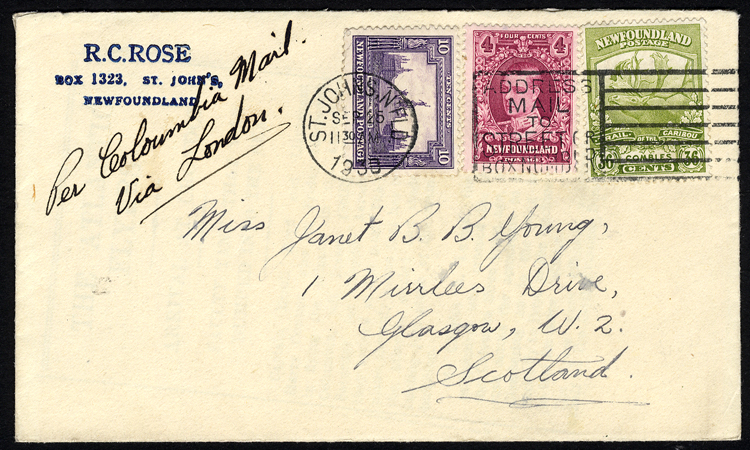 R.C. ROSE
BOX 1323, ST. JOHN'S,
NEWFOUNDLAND
Per Coloumbia Mail.
Via London.
10 TEN CENTS 10
NEWFOUNDLAND POSTAGE
FOUR CENTS
4 4
NEWFOUNDLAND
POSTAGE
NEWFOUNDLAND
POSTAGE
TRAIL OF THE CARIBOU
36 COMBLES 36
CENTS
ST. JOHN'S. NFLD
SEP 25
11 30 M
1930
ADDRESS
MAIL
TO
STREET OR
BOX NUMBER
Miss Janet B. B. Young,
1 Mirrlees Drive,
Glasgow, W. 2.
Scotland.